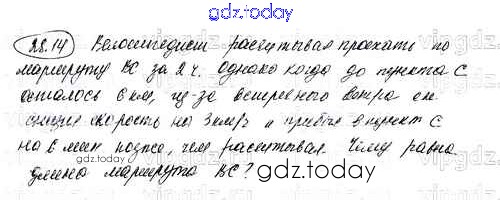 gdz.today
28.14 Велосипедист рассчитывал проехать по
маршруту ВС за 2 ч. однако когда до пункта С
осталось 6 км, из-за встречного ветра он
скорость на 3 км/ч и прибыл в пункт С
на 6 мин позже, чем рассчитывал. Чему равна
длина маршрута ВС?
gdz.today